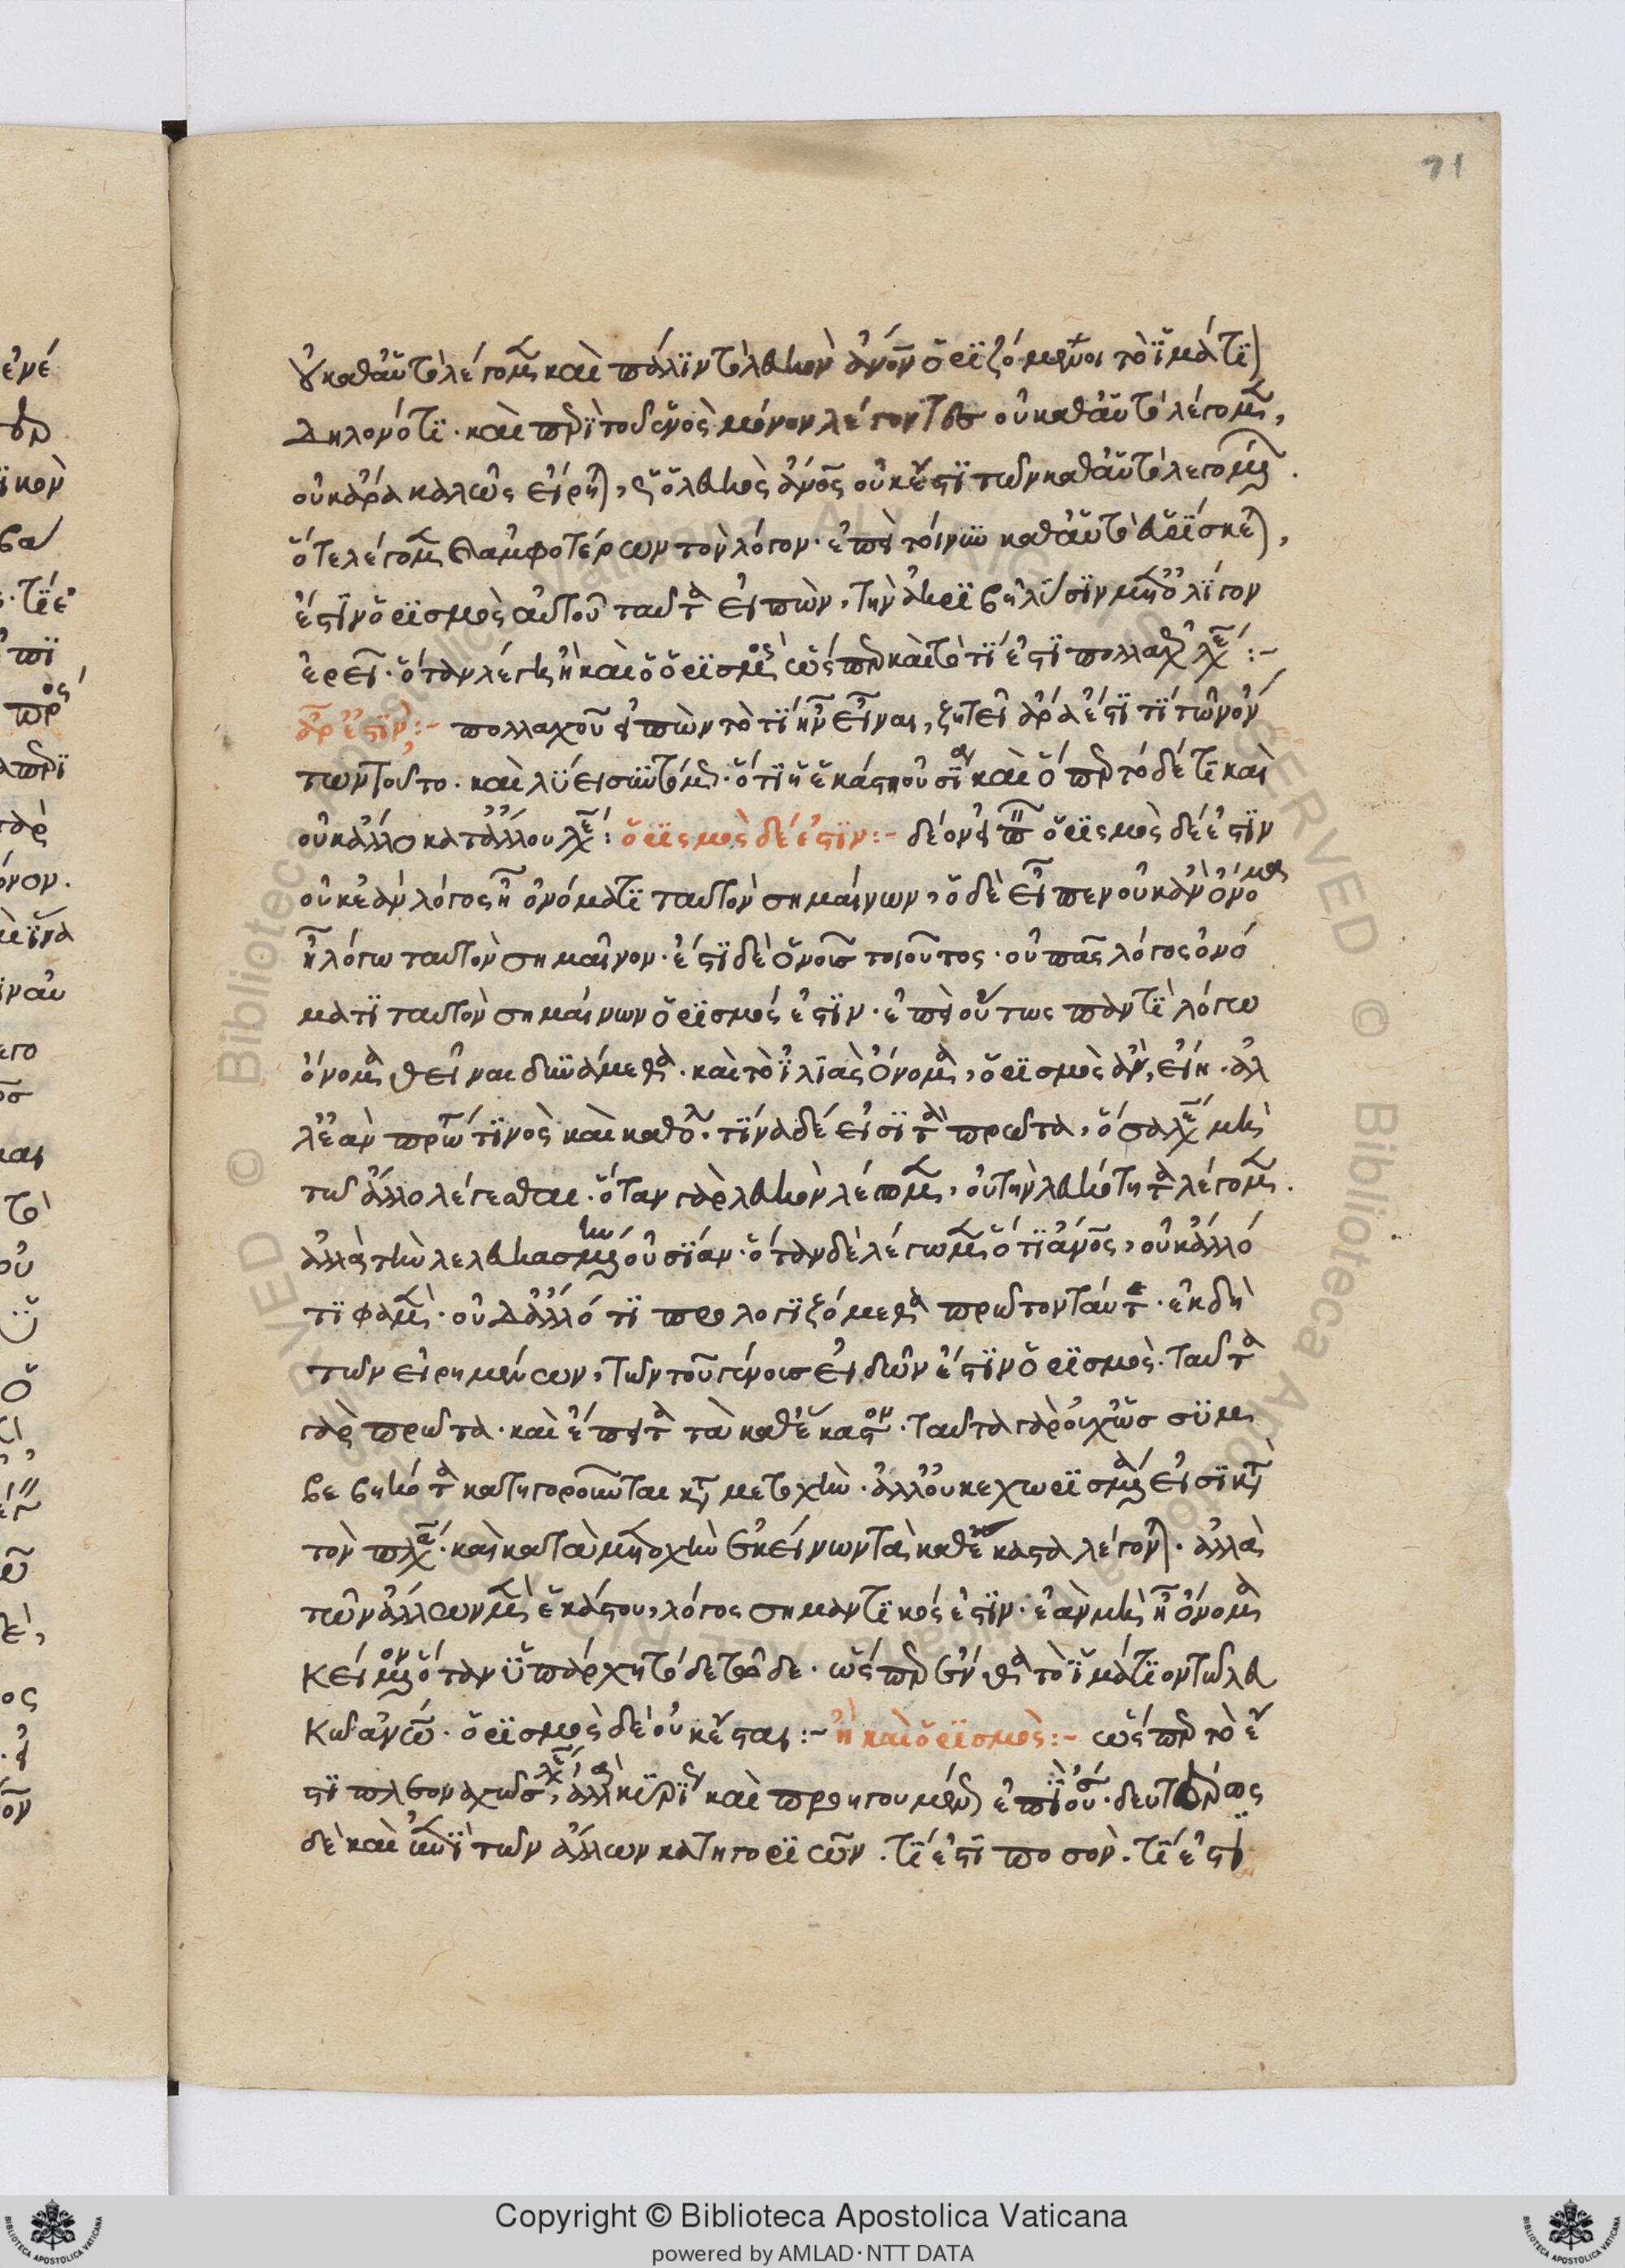 71
οὐ καθ' αὑτὸ λέγομεν καὶ πάλιν τὸ λευκὸν ἄνον ὁριζόμενοι τὸ ἱμάτι
δηλονότι · καὶ περὶ τοῦ ἑνὸς μόνον λέγοντες οὐ καθ' αὑτὸ λέγομεν,
οὐκ ἄρα καλῶς εἴρηται, ὁ λευκὸς ἄνος οὐκ ἔστι τῶν καθ' αὑτὸ λεγομέν .
ὅτε λέγομεν ἀμφοτέρων τὸν λόγον · ἐπεὶ τοίνυν καθ' αὑτὸ εὑρίσκεται,
ἔστιν ὁρισμὸς αὐτοῦ ταῦτα εἰπὼν, τὴν ἀκριβῆ λύσιν μετ' ὀλίγον
ἐρεῖ · ὅταν λέγη ἢ καὶ ὁ ὁρισμὸς ὥσπερ καὶ τὸ τί ἐστι πολλαχ λέγεται :-
ἆρ' ἐστίν; :- πολλαχοῦ εἰπὼν τὸ τί ἦν εἶναι, ζητεῖ ἆρα ἐστί τι τῶν ὄν
των τοῦτο · καὶ λύει συντόμως · ὅτι ἡ ἑκάστη οὐσία καὶ ὅπερ τόδε τι καὶ
οὐκ ἄλλο κατ' ἄλλου λέγεται : ὁρισμὸς δέ ἐστιν :- δέον εἰπ ὁρισμὸς δέ ἐστιν
οὐκ ἐὰν λόγος ἢ ὀνόματι ταυτὸν σημαίνων, ὁ δὲ εἶπεν οὐκ ἂν ὄνομα
ἢ λόγω ταυτὸν σημαῖνον · ἔστι δὲ ὁ νοῦς τοιοῦτος · οὐ πᾶς λόγος ὀνό
ματι ταυτὸν σημαίνων ὁρισμός ἐστιν · ἐπεὶ οὕτως παντὶ λόγω
ὄνομα θεῖναι δυνάμεθα · καὶ τὸ ἰλιὰς ὄνομα, ὁρισμὸς ἂν, εἴη · ἀλ
λ' ἐὰν πρώτ τινὸς καὶ καθόλ · τίνα δέ εἰσι τὰ πρῶτα, ὅσα λέγεται μὴ
τῶ ἄλλο λέγεσθαι · ὅταν γὰρ λευκὸν λέγομεν, οὐ τὴν λευκότητα λέγομεν .
ἀλλὰ τὴν λελευκασμένην οὐσίαν · ὅταν δὲ λέγωμεν ὅτι ἄνος, οὐκ ἄλλό
τι φαμὲν · οὐδ' ἄλλό τι προλογιζόμεθα πρῶτον ταύτ · ἐκ δὴ
τῶν εἰρημένων, τῶν τοῦ γένους εἰδῶν ἔστιν ὁρισμὸς · ταῦτα
γὰρ πρῶτα · καὶ ἔπειτα τὰ καθ' ἕκαστον · ταῦτα γὰρ οὐχ ὡς συμ
βεβηκότα κατηγοροῦνται κατὰ μετοχὴν · ἀλλ' οὐ κεχωρισμένα εἰσὶ κατὰ
τὸν πλάτ · καὶ κατὰ μετοχὴν ἐκείνων τὰ καθ' ἕκαστα λέγονται · ἀλλὰ
τῶν ἄλλων μὲν ἑκάστου, λόγος σημαντικός ἐστιν · ἐὰν μὴ ἢ ὄνομα
κείμενον ὅταν ὑπάρχη τόδε τῶδε · ὥσπερ ἐνταῦθα τὸ ἱμάτιον τῶ λευ
κῶ ἀνω · ὁρισμὸς δὲ οὐκ ἔσται :- ἢ καὶ ὁρισμὸς :- ὥσπερ τὸ ἔ
στι πλεοναχῶς λέγεται, ἀλλὰ κυρί καὶ προηγουμέν ἐπὶ οὐσί · δευτέρως
δὲ καὶ ἐπὶ τῶν ἄλλων κατηγοριῶν · τί ἐστι ποσὸν · τί ἐστι
Copyright © Biblioteca Apostolica Vaticana
powered by AMLAD·NTT DATA